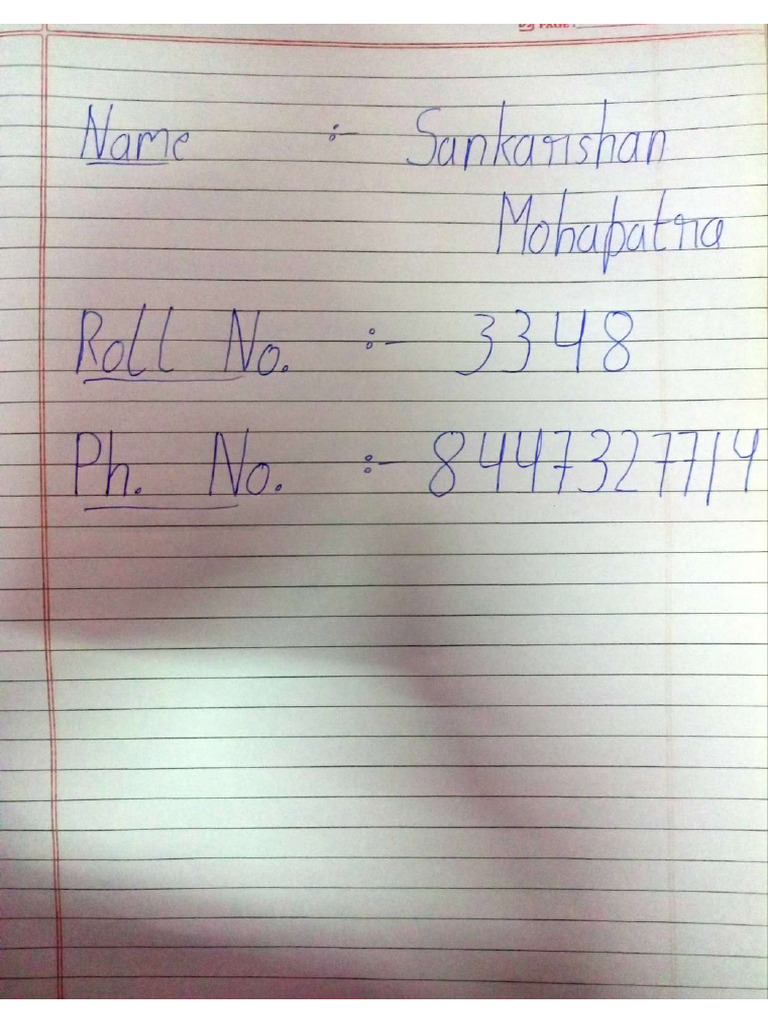 PAGE :
Name :- Sankarshan
Mohapatra
Roll No. :- 3348
Ph. No. :-8447327714